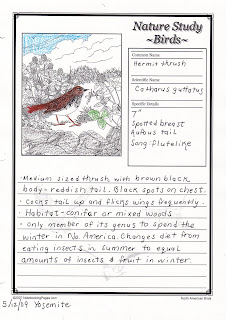 Nature Study
~Birds~
Common Name
Hermit thrush
Scientific Name
Catharus guttatus
Specific Details
7"
Spotted breast
Rufous tail
Song: flutelike
• Medium sized thrush with brown black
body - reddish tail. Black spots on chest.
• Cocks tail up and flicks wings frequently.
• Habitat - conifer or mixed woods
• Only member of its genus to spend the
winter in No. America. Changes diet from
eating insects in summer to equal
amounts of insects & fruit in winter.
North American Birds
5/12/09 Yosemite